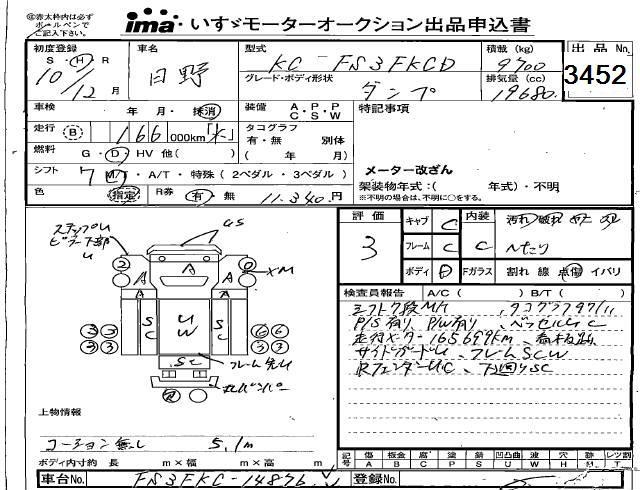 ◎赤太枠内は必ず
ボールペンで
ご記入下さい。
ima いすゞモーターオークション出品申込書
初度登録
S・H・R
10/12月
車名
日野
型式
KC-FS3FKCD
積載(kg)
9700
出品No.
3452
グレード・ボディ形状
ダンプ
排気量(cc)
19680
車検 年 月・抹消
装備 A・P・P C・S・W
特記事項
走行 B 166 000km「K」
タコグラフ
有・無 別体
( 年 月)
燃料 G・D・HV 他( )
メーター改ざん
シフト 7 M/T・A/T・特殊(2ペダル・3ペダル)
架装物年式:( 年式)・不明
※不明の場合は、不明に○をする。
色 指定
R券 有・無 11,340円
評価
3
キャブ C
内装 C
フレーム C
ボディ D
Fガラス 割れ 線 点傷 イバリ
ヘたり
検査員報告 A/C( ) B/T( )
シフト7段MT
P/S有り P/W有り
走行メーター165,699km
サイドガードU、フレームSCW
RフェンダーUC、下回りSC
ステップU
GS
XM
A A A
2
SC
UW
SC
SC
フレーム先U
3 3 6 6
3 3 3 3
R
上物情報
コーション無し 5.1m
ボディ内寸約 長 m×幅 m×高 m
記号 傷A 板金B 腐C 塗P 錆S 凹凸曲U 波W 穴H 跡M レツ割T
車台No. FS3FKC-14876
登録No.